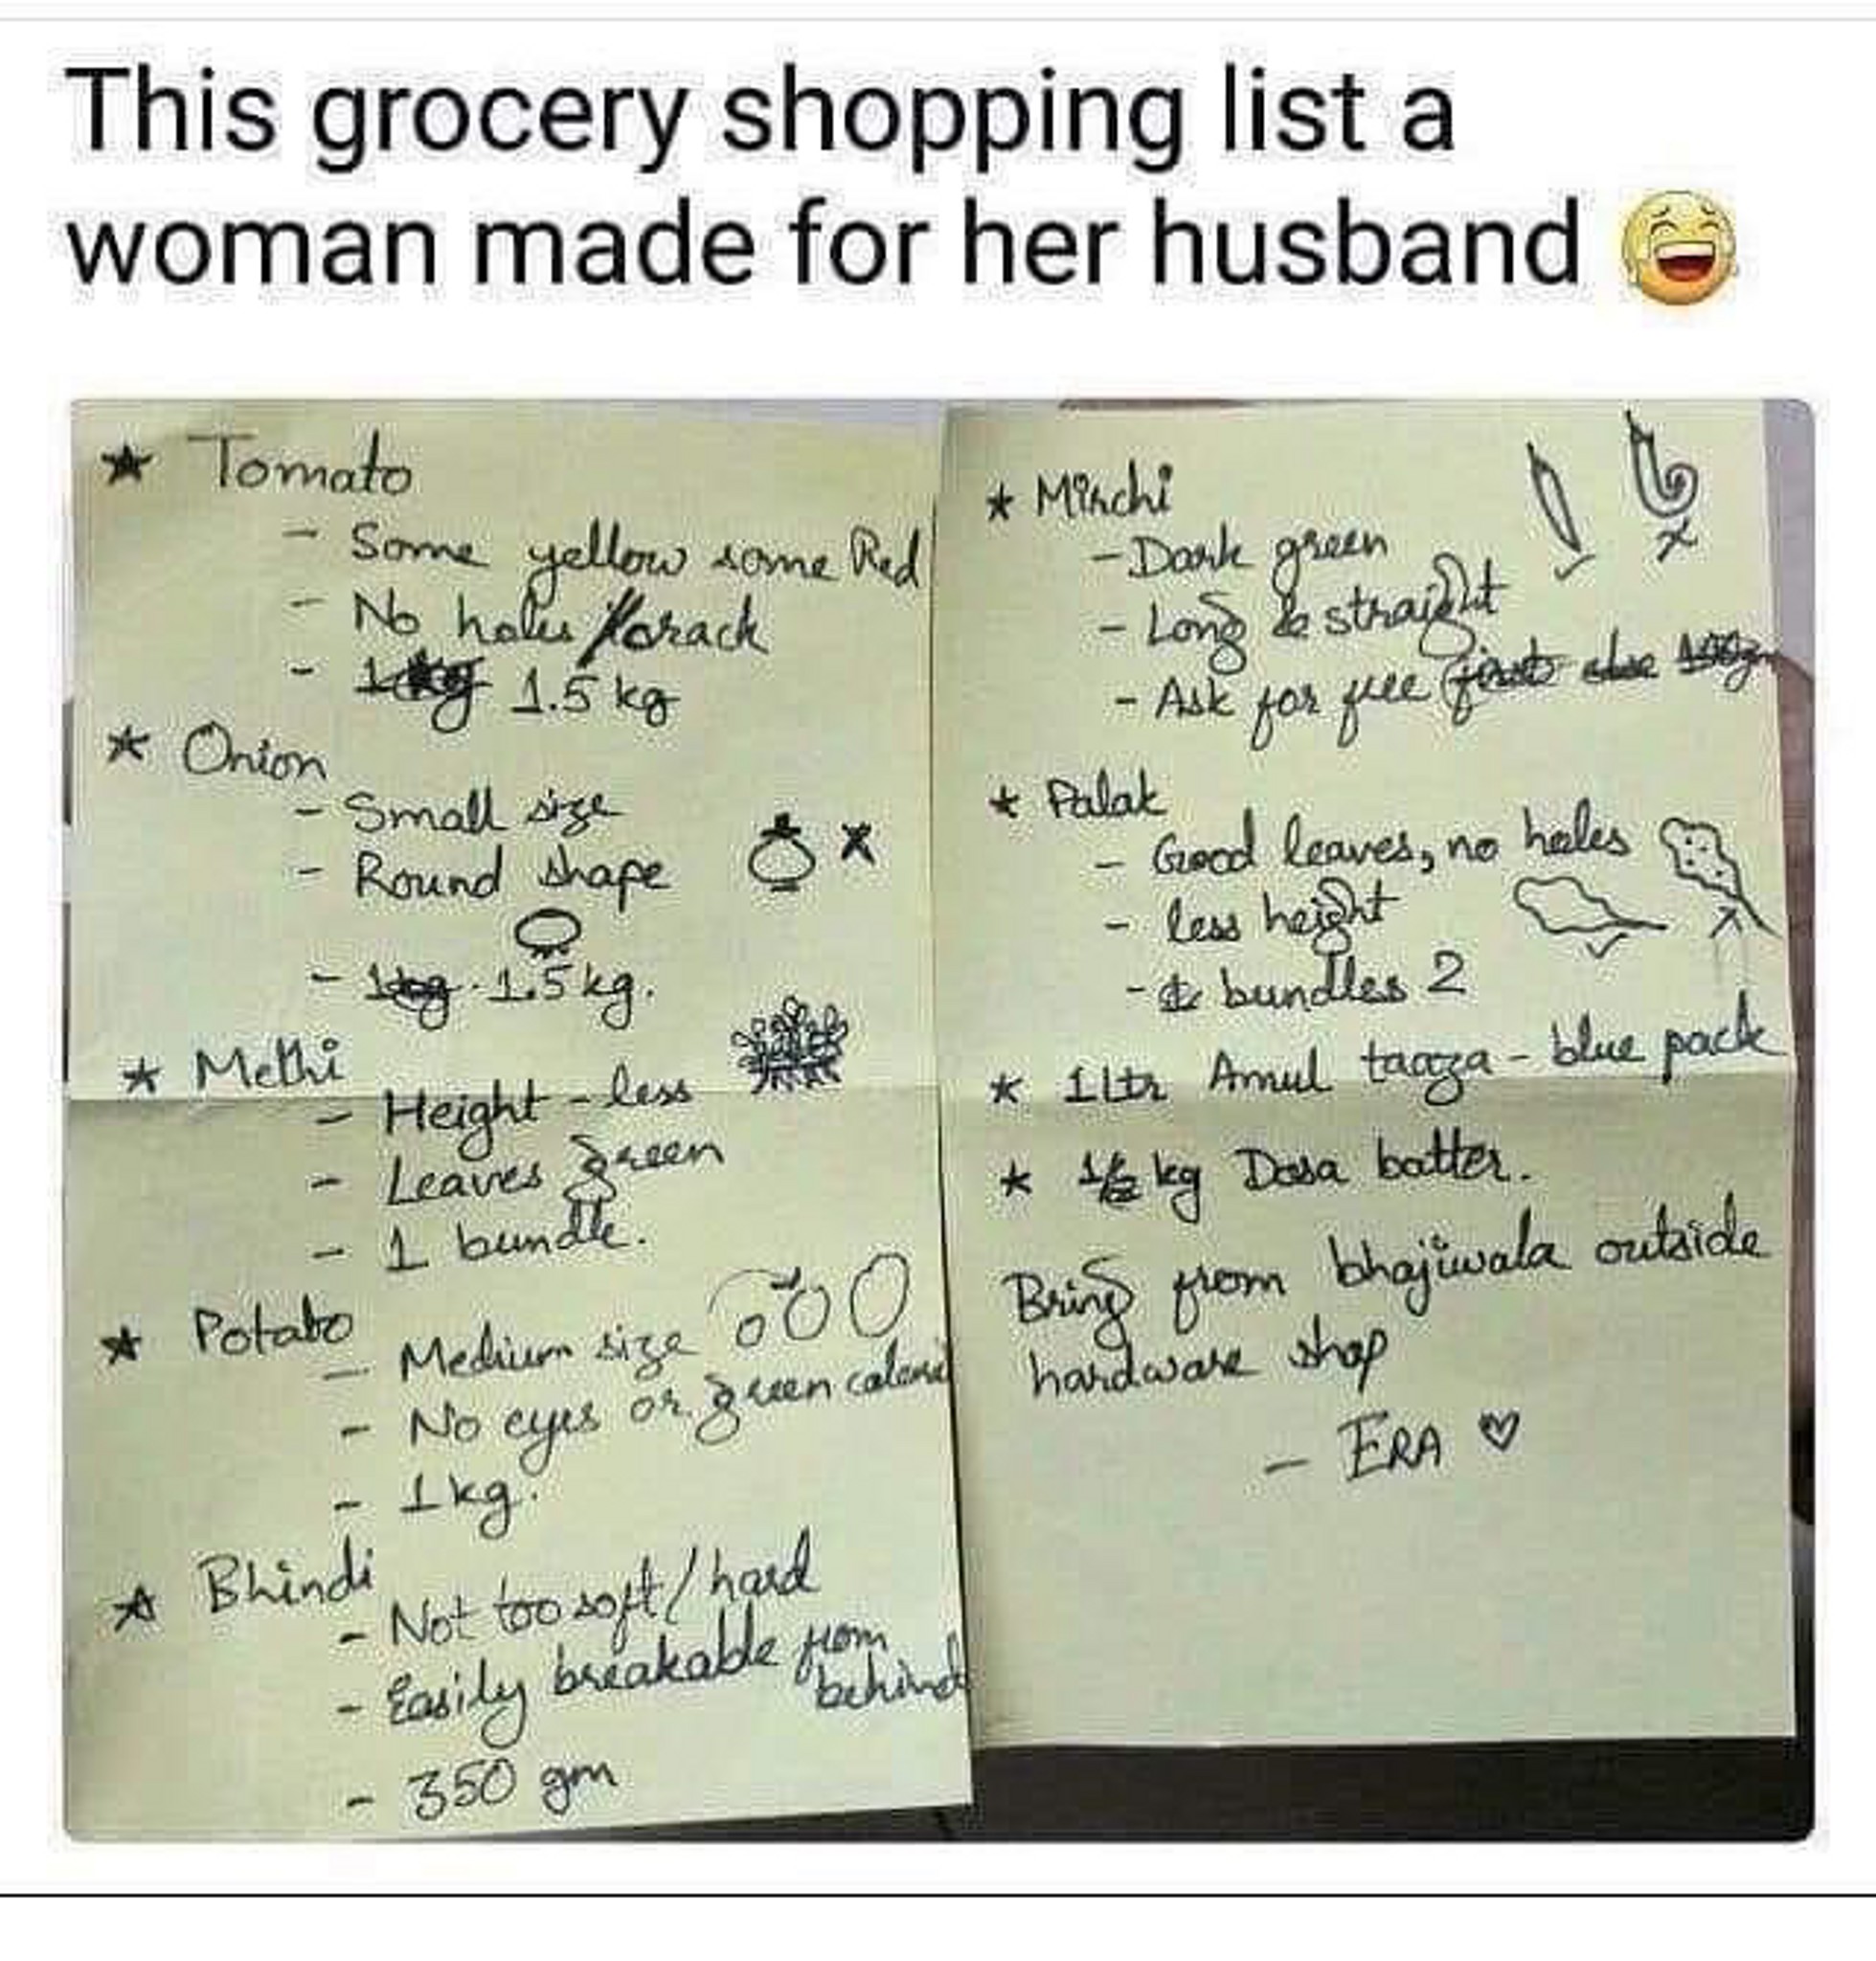 This grocery shopping list a
woman made for her husband 😂
★ Tomato
- Some yellow some Red
- No holes / crack
- 1.5 kg
★ Onion
- Small size
- Round shape
- 1kg 1.5 kg.
★ Methi
- Height - less
- Leaves green
- 1 bundle.
★ Potato
- Medium size
- No eyes or green
- 1 kg.
★ Bhindi
- Not too soft / hard
- Easily breakable from
behind
- 350 gm
★ Mirchi
- Dark green
- Long & straight
- Ask for free
★ Palak
- Good leaves, no holes
- less height
- bundles 2
★ 1 Ltr Amul taaza - blue pack
★ 1/2 kg Dosa batter.
Bring from bhajiwala outside
hardware shop
- ERA ♡